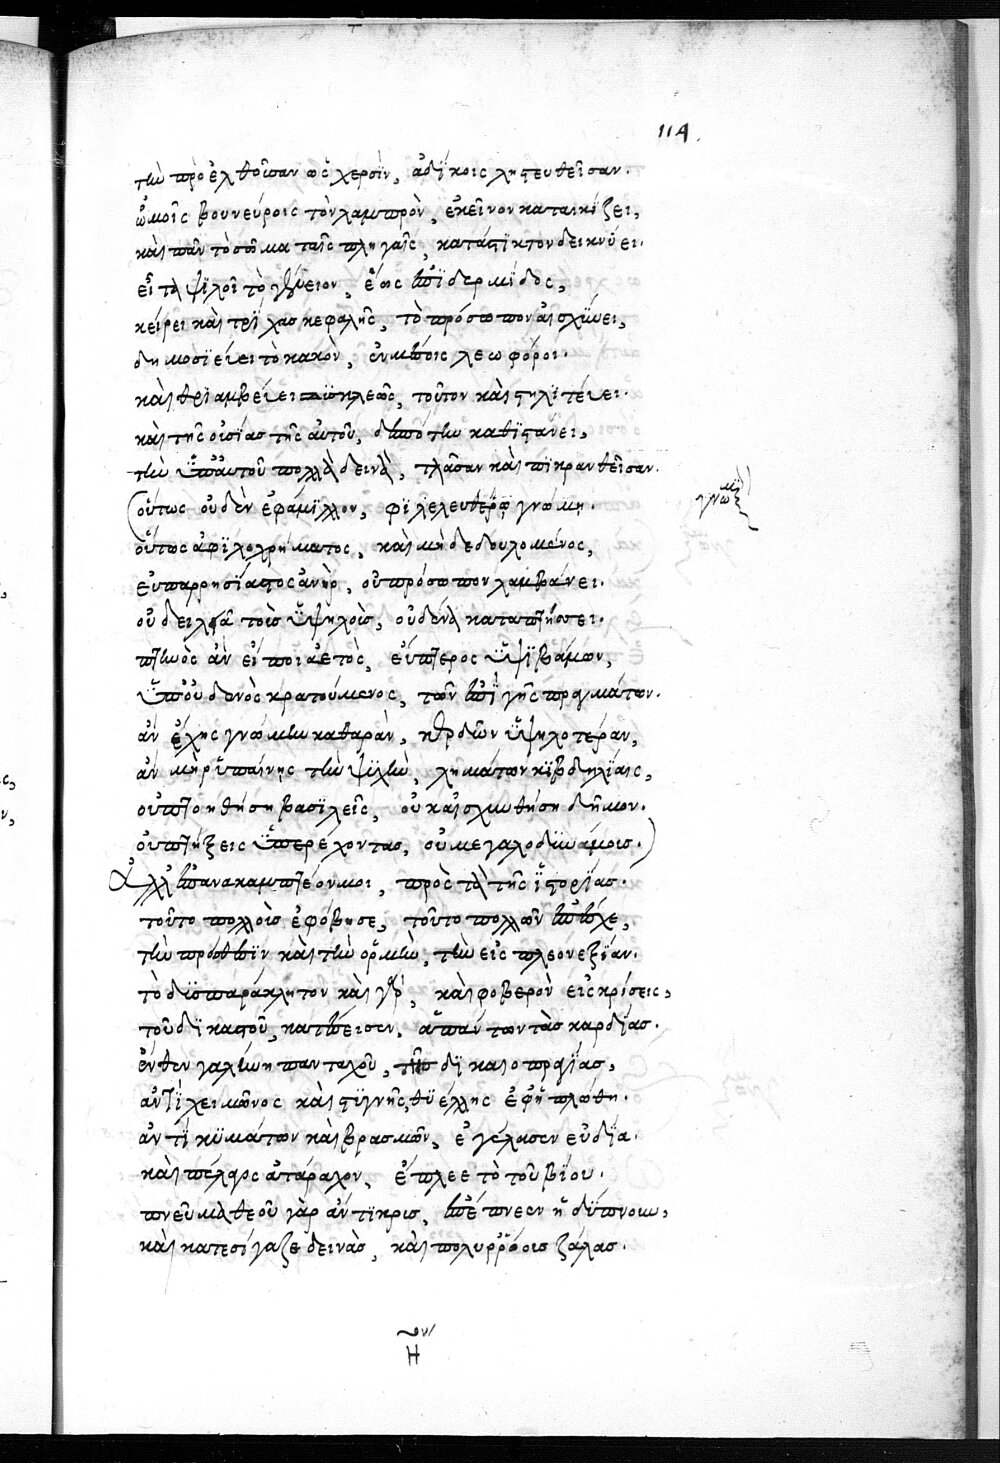 114
τὴν προελθοῦσαν ὡς χερσὶν, ἀδίκοις ληστευθεῖσαν.
ὠμοῖς βουνεύροις τὸν λαμπρὸν, ἐκεῖνον καταικίζει,
καὶ πᾶν τὸ σῶμα ταῖς πληγαῖς, κατάστικτον δεικνύει.
εἶτα ψιλοῖ τὸ γένειον, ἕως ἐπιδερμίδος,
κείρει καὶ τρίχας κεφαλῆς, τὸ πρόσωπον αἰσχύνει,
δημοσιεύει τὸ κακὸν, ἐν μέσοις λεωφόροι.
καὶ θριαμβεύει δυσκλεῶς, τοῦτον καὶ στηλιτεύει.
καὶ τῆς οὐσίας τῆς αὐτοῦ, δεσπότην καθιστάνει,
τὴν ὑπ' αὐτοῦ πολλὰ δεινὰ, τλᾶσαν καὶ πικρανθεῖσαν.
οὕτως οὐδὲν ἐφάμιλλον, φιλελευθέρῳ γνώμῃ.
γνώμη
οὕτως ἀφιλοχρήματος, καὶ μὴ δεδουλομένος,
εὐπαρρησίαστος ἀνὴρ, οὐ πρόσωπον λαμβάνει.
οὐ δειλιᾶ τοὺς ὑψηλοὺς, οὐδένα καταπτήσσει.
πτηνὸς ἂν εἴποι ἀετὸς, εὔπτερος ὑψιβάμων,
ὑπ' οὐδενὸς κρατούμενος, τῶν ἐπὶ γῆς πραγμάτων.
ἂν ἔχῃς γνώμην καθαρὰν, κερδῶν ὑψηλοτέραν,
ἂν μὴ ῥυπαίνῃς τὴν ψυχὴν, λημάτων κιβδηλίαις,
οὐ πτοηθήσῃ βασιλεῖς, οὐκ αἰσχυνθήσῃ δῆμον.
οὐ πτήξεις ὑπερέχοντας, οὐ μεγαλοδυνάμους.
Ἀλλ' ἐπανακαμπτέον μοι, πρὸς τὰ τῆς ἱστορίας.
τοῦτο πολλοὺς ἐφόβησε, τοῦτο πολλῶν ἐπέσχε,
τὴν πρόθεσιν καὶ τὴν ὁρμὴν, τὴν εἰς πλεονεξίαν.
τὸ δυσπαράκλητον καὶ γὰρ, καὶ φοβερὸν εἰς κρίσεις,
τοῦ δικαστοῦ, κατέσεισεν, ἁπάντων τὰς καρδίας.
ἔνθεν γαλήνη πανταχοῦ, τῆς δικαιοπραγίας,
ἀντὶ χειμῶνος καὶ στυγνῆς, θυέλλης ἐφηπλώθη.
ἀντὶ κυμάτων καὶ βρασμῶν, ἐγέλασεν εὐδία.
καὶ πέλαγος ἀτάραχον, ἔπλεε τὸ τοῦ βίου.
πνεῦμα θεοῦ γὰρ ἄντικρις, ἐπέπνεεν ἡδύπνουν,
καὶ κατεσίγαζε δεινὰς, καὶ πολυρρόους ζάλας.